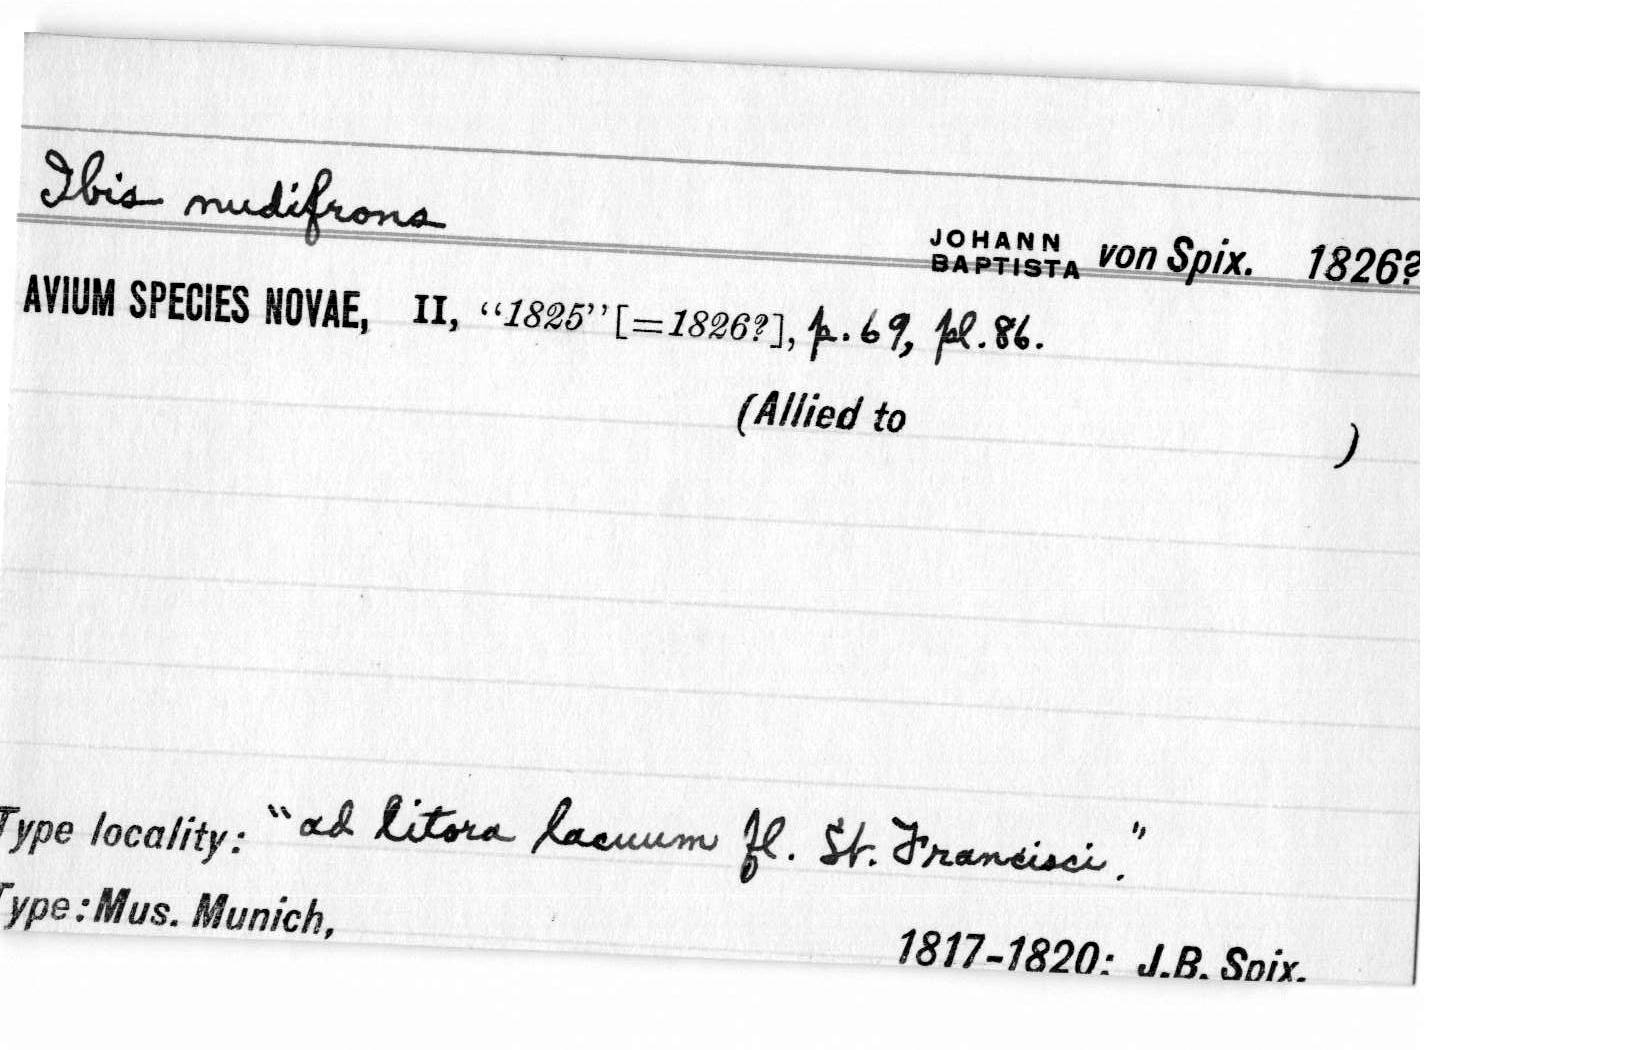 Ibis nudifrons
JOHANN BAPTISTA von Spix. 1826?
AVIUM SPECIES NOVAE, II, “1825” [=1826?], p. 69, pl. 86.
(Allied to )
Type locality: "ad litora lacuum fl. St. Francisci."
Type: Mus. Munich,
1817-1820: J.B. Spix.